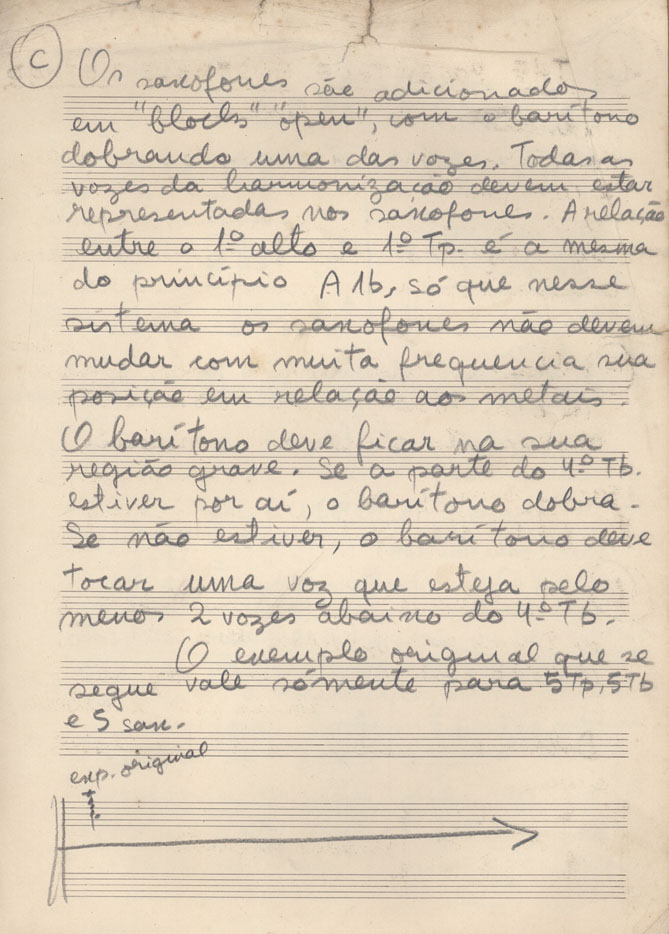 C Os saxofones são adicionados
em "blocks" "open", com o barítono
dobrando uma das vozes. Todas as
vozes da harmonização devem estar
representadas nos saxofones. A relação
entre o 1º alto e 1º Tp. é a mesma
do princípio A 1b, só que nesse
sistema os saxofones não devem
mudar com muita frequencia sua
posição em relação aos metais.
O barítono deve ficar na sua
região grave. Se a parte do 4º Tb.
estiver por aí, o barítono dobra.
Se não estiver, o barítono deve
tocar uma voz que esteja pelo
menos 2 vozes abaixo do 4º Tb.
O exemplo original que se
segue vale sómente para 5 Tp, 5 Tb
e 5 sax.
exp. original